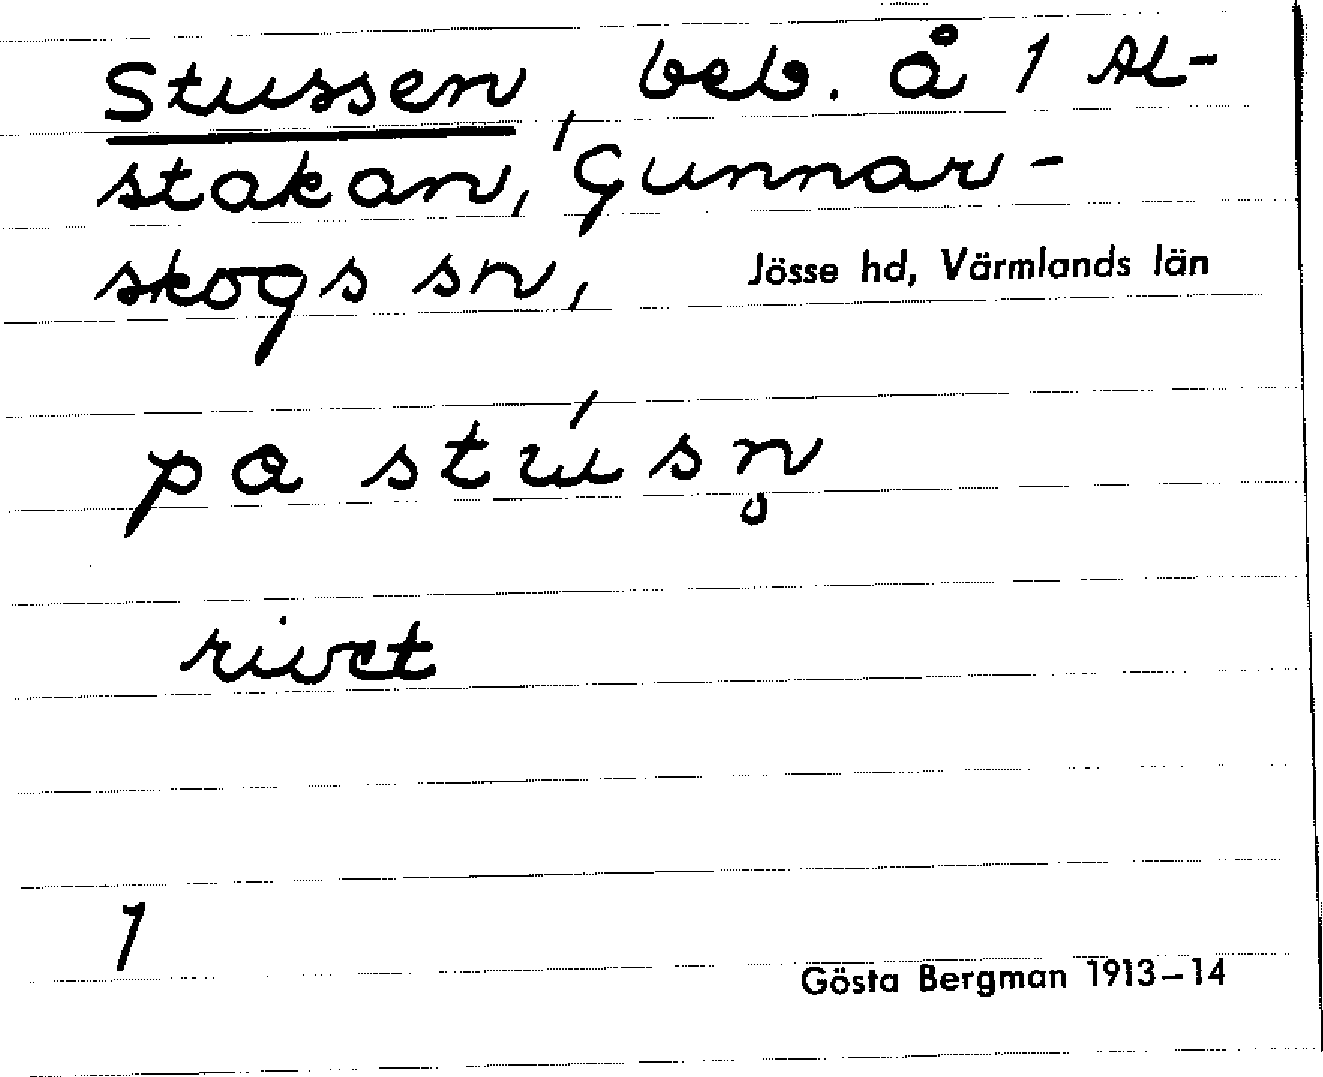 Stussen, beb. å 1 Al-
stakan, Gunnar-
skogs sn, Jösse hd, Värmlands län
pa stúsn̥
rivet
1
Gösta Bergman 1913–14